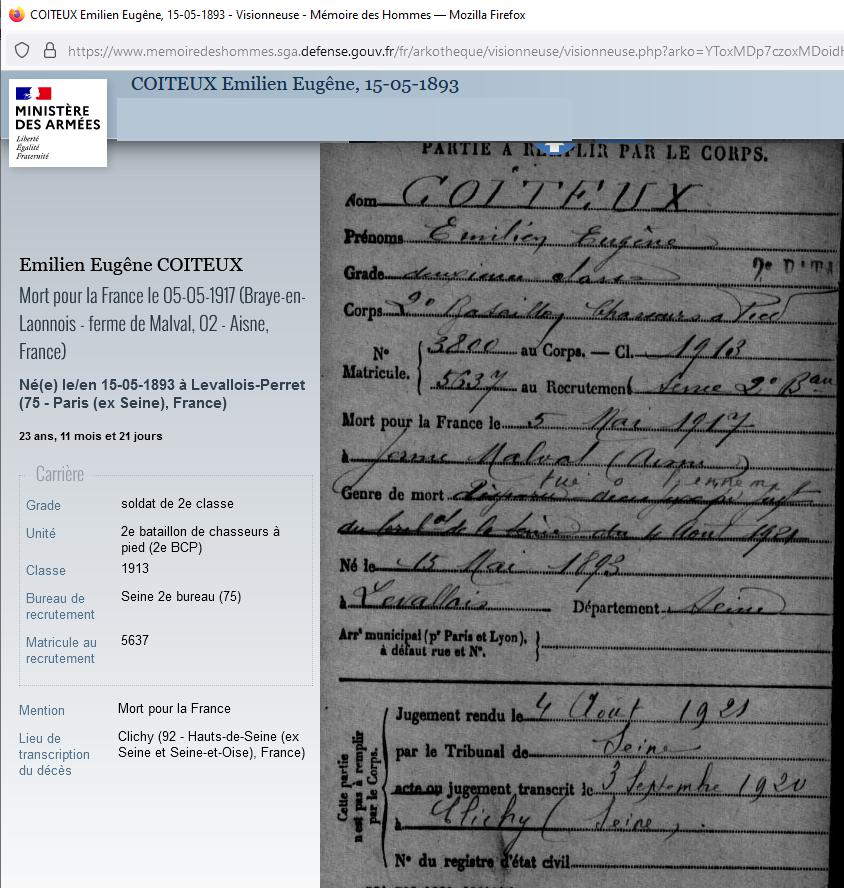 COITEUX Emilien Eugêne, 15-05-1893 - Visionneuse - Mémoire des Hommes — Mozilla Firefox
https://www.memoiredeshommes.sga.defense.gouv.fr/fr/arkotheque/visionneuse/visionneuse.php?arko=YToxMDp7czoxMDoidH
COITEUX Emilien Eugêne, 15-05-1893
MINISTÈRE
DES ARMÉES
Liberté
Égalité
Fraternité
Emilien Eugêne COITEUX
Mort pour la France le 05-05-1917 (Braye-en-
Laonnois - ferme de Malval, 02 - Aisne,
France)
Né(e) le/en 15-05-1893 à Levallois-Perret
(75 - Paris (ex Seine), France)
23 ans, 11 mois et 21 jours
Carrière
Grade soldat de 2e classe
Unité 2e bataillon de chasseurs à
pied (2e BCP)
Classe 1913
Bureau de Seine 2e bureau (75)
recrutement
Matricule au 5637
recrutement
Mention Mort pour la France
Lieu de Clichy (92 - Hauts-de-Seine (ex
transcription Seine et Seine-et-Oise), France)
du décès
PARTIE A REMPLIR PAR LE CORPS.
Nom COITEUX
Prénoms Emilien Eugêne
Grade deuxième classe
Corps 2e Bataillon Chasseurs à Pied
N° 3800 au Corps. — Cl. 1913
Matricule. 5637 au Recrutement Seine 2e Bau
Mort pour la France le 5 Mai 1917
à ferme Malval (Aisne)
tué à l'ennemi
Genre de mort disparu
du 4 Août 1921
Né le 15 Mai 1893
à Levallois Département Seine
Arrt municipal (pr Paris et Lyon),
à défaut rue et N°.
Cette partie
n'est pas à remplir
par le Corps.
Jugement rendu le 4 Août 1921
par le Tribunal de Seine
acte ou jugement transcrit le 3 Septembre 1920
à Clichy (Seine).
N° du registre d'état civil